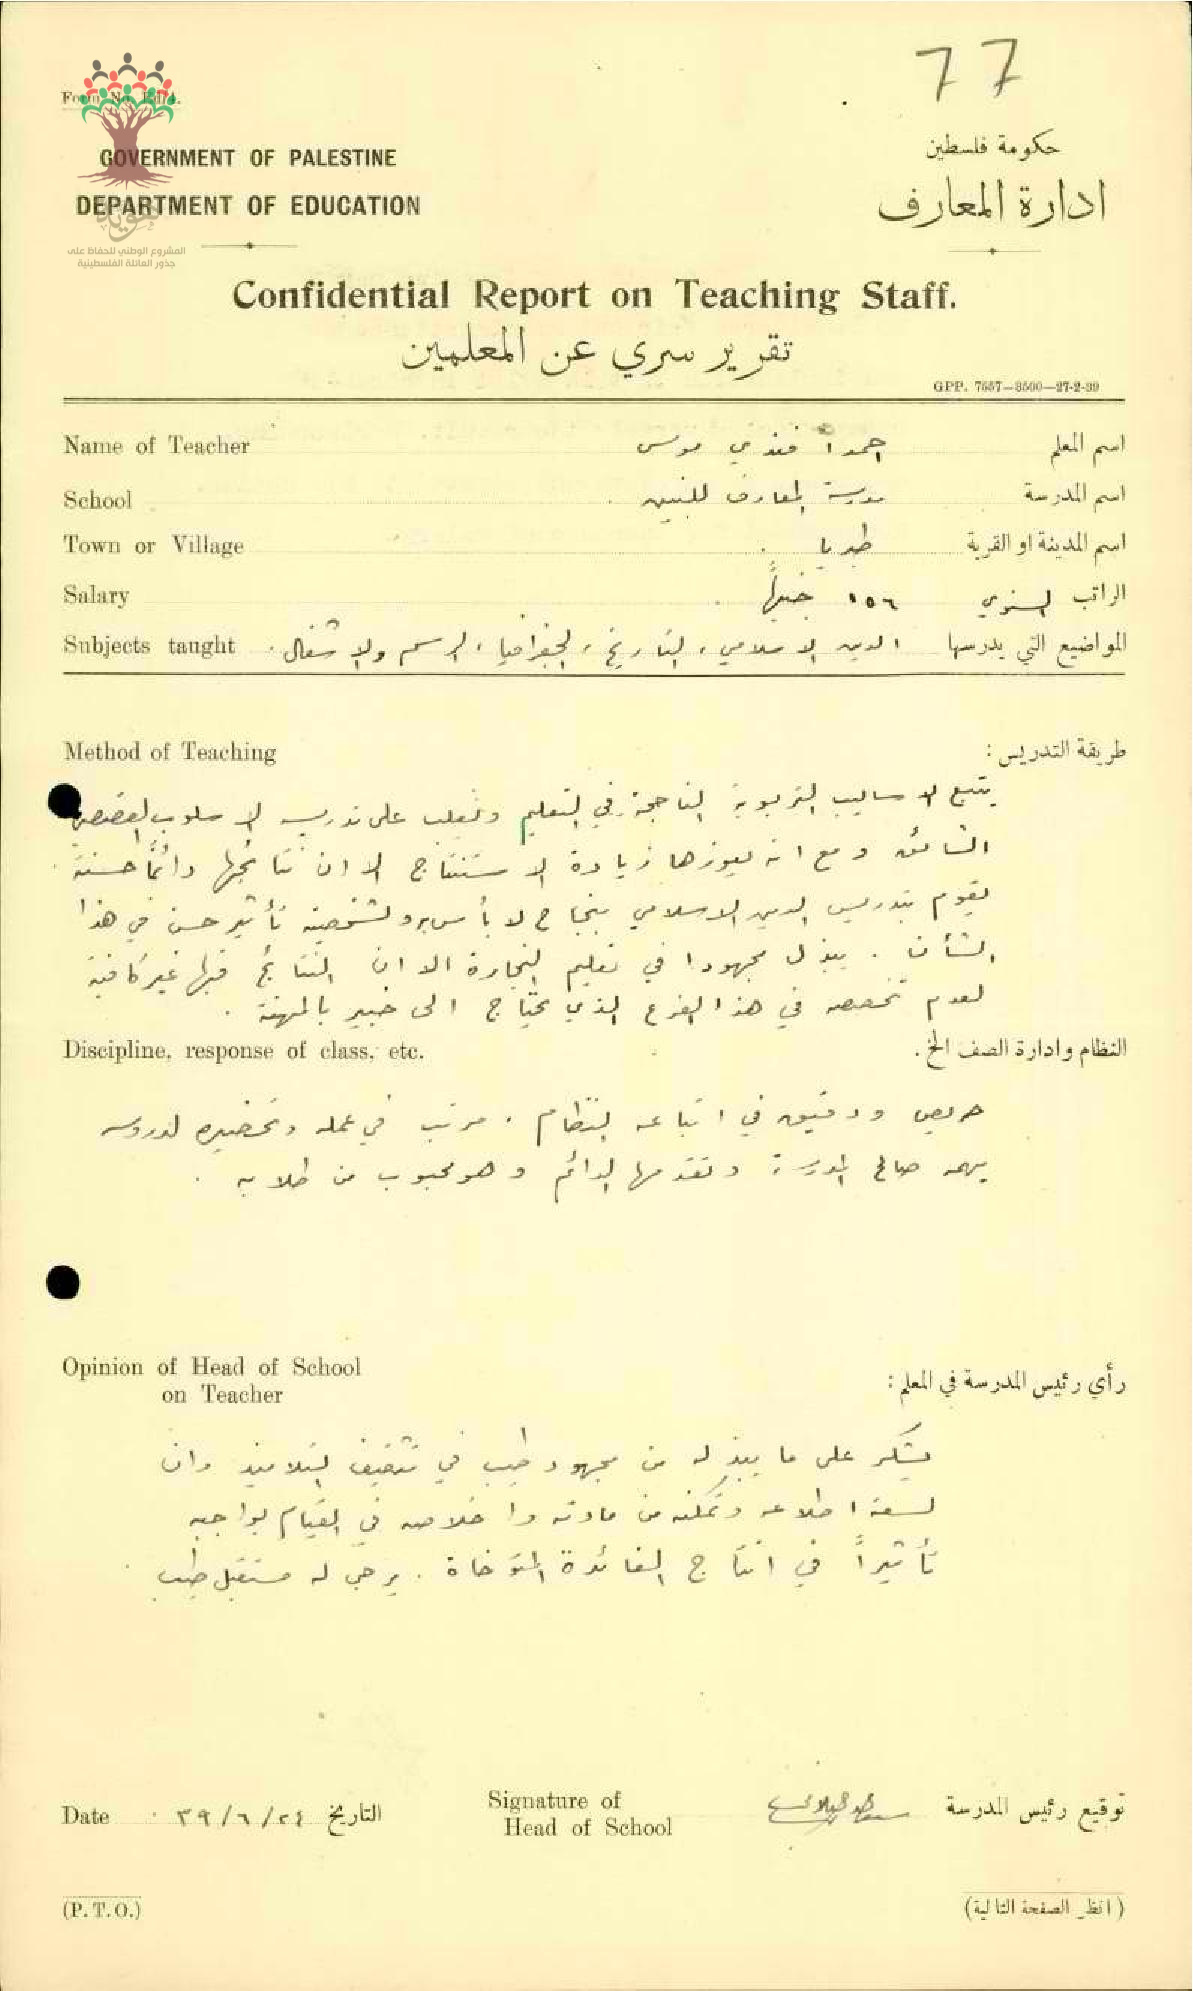 77
Form No. Ed/4.
GOVERNMENT OF PALESTINE
حكومة فلسطين
DEPARTMENT OF EDUCATION
ادارة المعارف
هوية
المشروع الوطني للحفاظ على
جذور العائلة الفلسطينية
Confidential Report on Teaching Staff.
تقرير سري عن المعلمين
GPP. 7557—3500—27-2-39
Name of Teacher احمد افندي موسى اسم المعلم
School مدرسة المعارف للبنين اسم المدرسة
Town or Village طبريا اسم المدينة او القرية
Salary ١٥٦ جنيهاً الراتب السنوي
Subjects taught الدين الاسلامي، التاريخ، الجغرافيا، الرسم والاشغال. المواضيع التي يدرسها
Method of Teaching طريقة التدريس:
يتبع الاساليب التربوية الناجحة في التعليم ويغلب على تدريسه الاسلوب القصصي
الشائق ومع انه يعوزها زيادة الاستنتاج الا ان نتائجها دائماً حسنة
يقوم بتدريس الدين الاسلامي بنجاح لا بأس به ولشخصيته تأثير حسن في هذا
الشأن. يبذل مجهودا في تعليم النجارة الا ان النتائج فيها غير كافية
لعدم تخصصه في هذا الفرع الذي يحتاج الى خبير بالمهنة.
Discipline, response of class, etc. النظام وادارة الصف الخ.
حريص ودقيق في اتباعه النظام. مرتب في عمله وتحضيره لدروسه
يهمه صالح المدرسة وتقدمها الدائم وهو محبوب من طلابه.
Opinion of Head of School
on Teacher
رأي رئيس المدرسة في المعلم:
يشكر على ما يبذله من مجهود طيب في تثقيف التلاميذ وان
لسعة اطلاعه وتمكنه من مادته واخلاصه في القيام بواجبه
تأثيراً في انتاج الفائدة المتوخاة. يرجى له مستقبل طيب.
Date ٣٩/٦/٢٤ التاريخ
Signature of
Head of School
توقيع رئيس المدرسة
(P. T. O.)
(انظر الصفحة التالية)